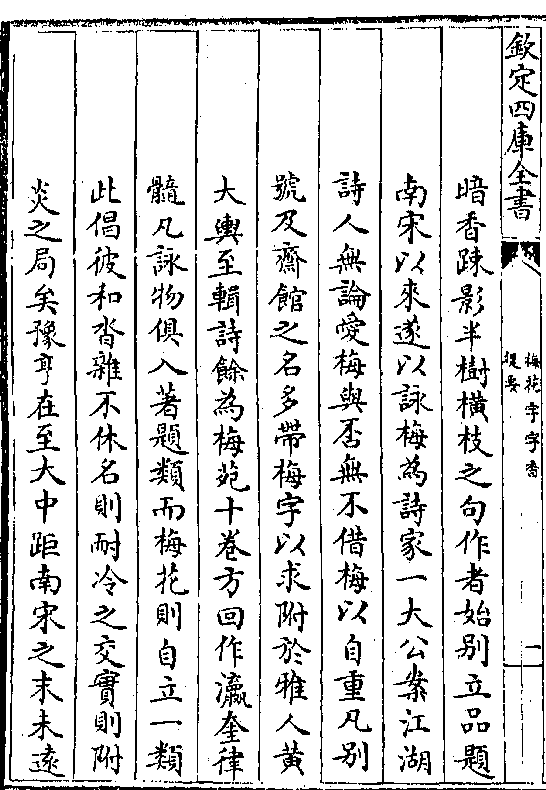 欽定四庫全書
梅花字字香
提要
一
暗香疎影半樹橫枝之句作者始别立品題
南宋以來遂以詠梅為詩家一大公案江湖
詩人無論愛梅與否無不借梅以自重凡别
號及齋館之名多帶梅字以求附於雅人黄
大輿至輯詩餘為梅苑十卷方回作瀛奎律
髓凡詠物俱入著題類而梅花則自立一類
此倡彼和沓雜不休名則耐冷之交實則附
炎之局矣豫亨在至大中距南宋之末未遠